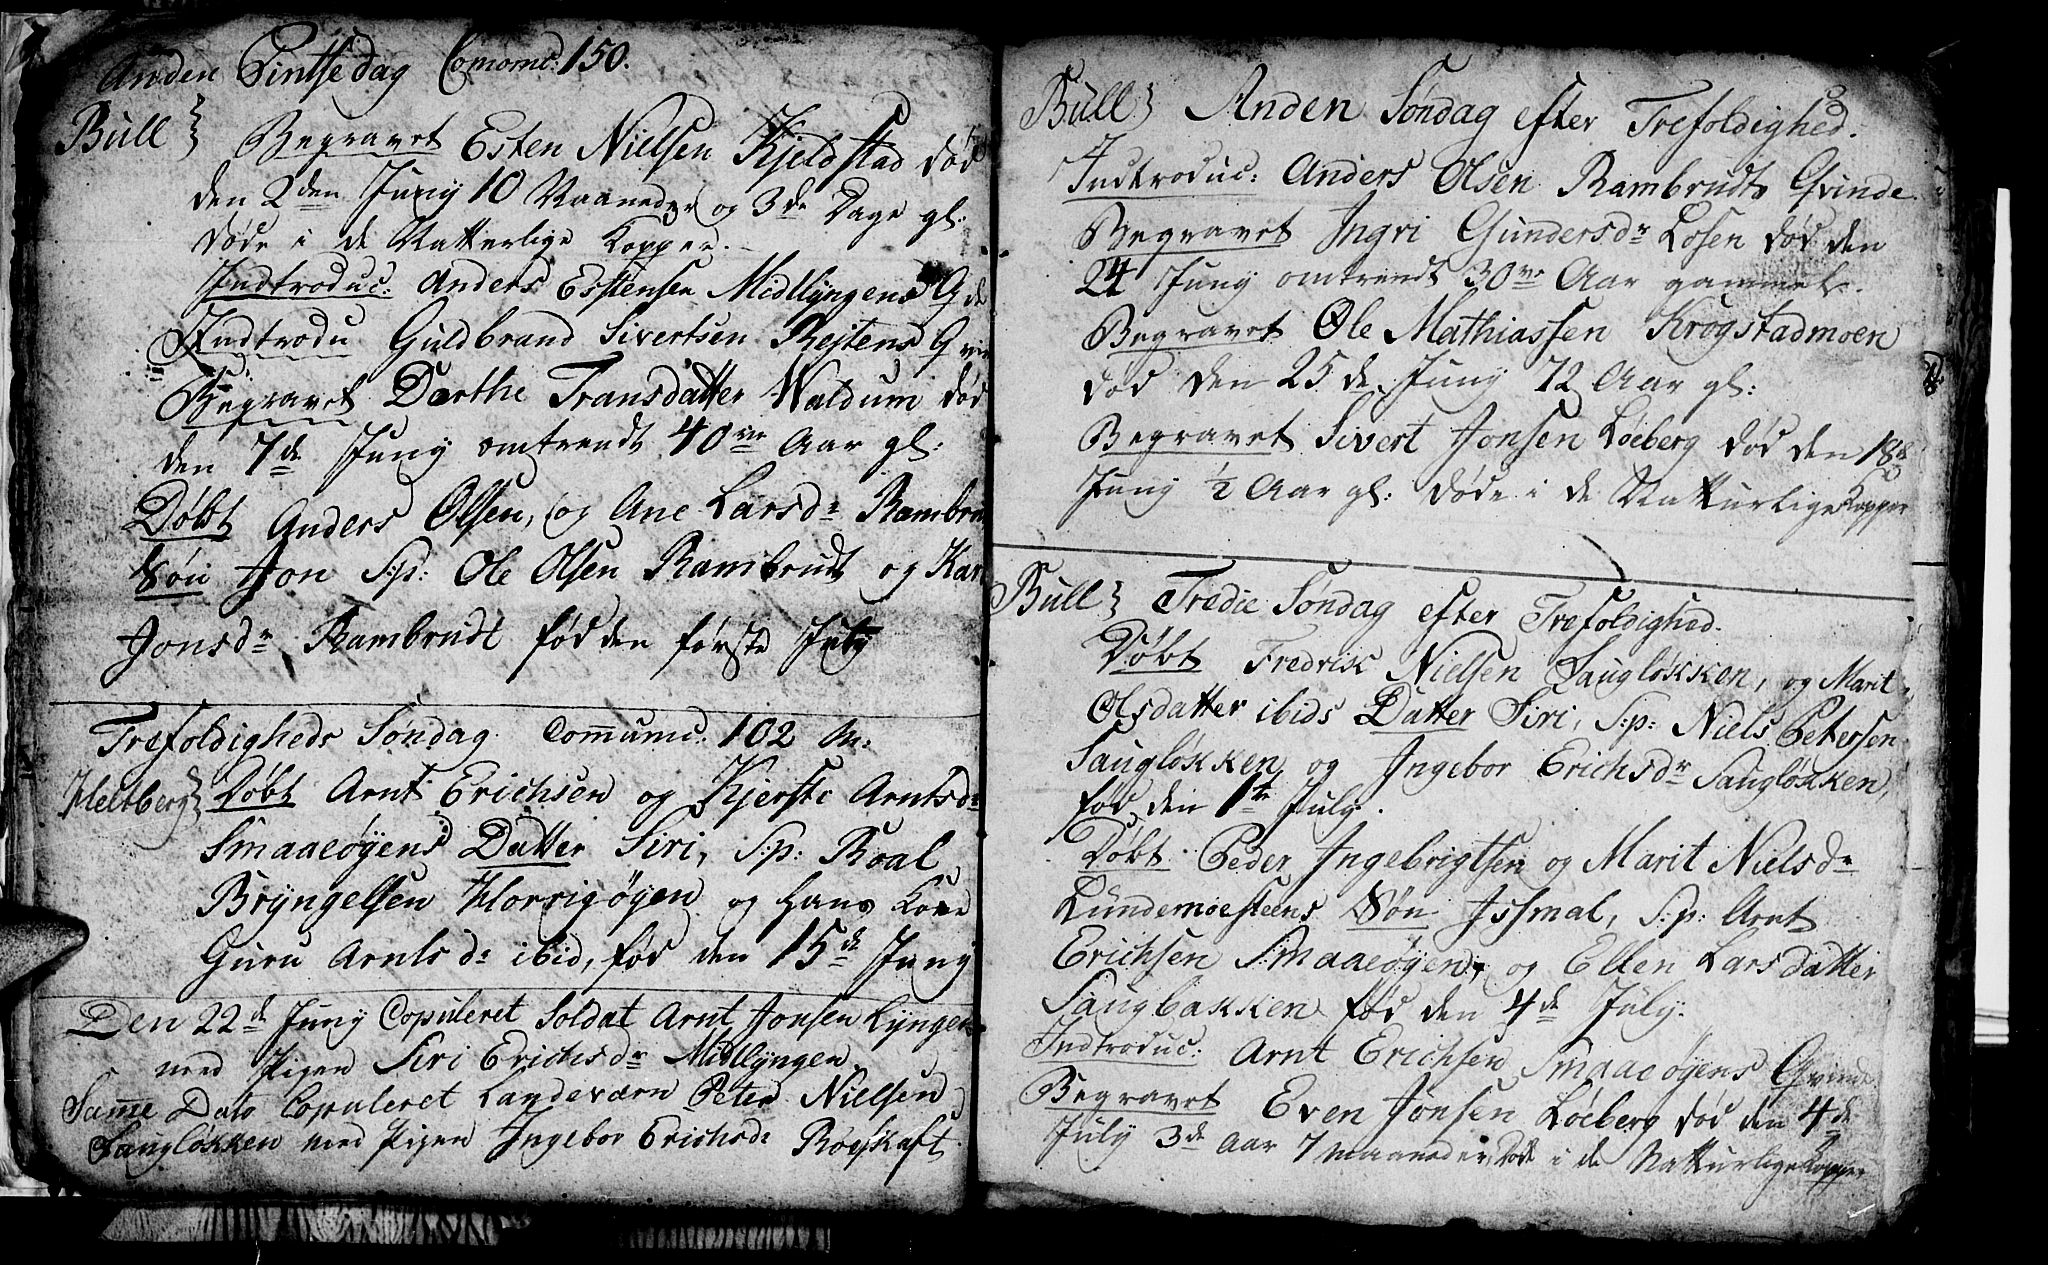 Anden Pintsedag Comōmc: 150.
Bull } Begravet Esten Nielsen Kjelsstad død
den 2den Juny 10 Maaneder og 3de Dage gl:
døde i de Natterlige Kopper.
Indtroduc: Anders Estensen Midllyngens Q de
Indtrodu Guldbrand Sivertsen Rejtens Qvin
Begravet Dorthe Transdatter Waldum død
den 7de Juny omtrendt 40ve Aar gl:
Døbt Anders Olsen, og Ane Larsdr Rambru
Søn Jon S:p: Ole Olsen Rambrudt og Kari
Jonsdr Rambrudt fød den første July
Trefoldigheds Søndag Commumc: 102 M:
Heltberg } Døbt Arnt Erichsen og Kjersti Arntsdr
Smaaeøyens Datter Siri, S:p: Roal
Bryngelsen Horrigøyen og hans Kone
Guru Arntsdr ibid, fød den 15de Juny
Den 22de Juny Copuleret Soldat Arnt Jonsen Lyngen
med Pigen Siri Erichsdr Midllyngen.
Samme Dato Copuleret Landeværn Peter Nielsen
Saugløkken med Pigen Ingebor Erichsdr Roeskaft.
Bull } Anden Søndag efter Trefoldighed.
Indtroduc: Anders Olsen Rambrudts Qvinde.
Begravet Ingri Gundersdr Losen død den
24 Juny omtrendt 30ve Aar gammel.
Begravet Ole Mathiassen Krogstadmoen
død den 25de Juny 72 Aar gl:
Begravet Sivert Jonsen Løeberg død den 18de
Juny ½ Aar gl: døde i de Natturlige Kopper
Bull } Tredie Søndag efter Trefoldighed.
Døbt Fredrik Nielsen Saugløkken, og Marit
Olsdatter ibids Datter Siri, S:p: Niels Petersen
Saugløkken og Ingebor Erichsdr Saugløkken,
fød den 1te July.
Døbt Peder Ingebrigtsen og Marit Nielsdr
Lundemoesteens Søn Issmal, S:p: Arnt
Erichsen Smaaeøyen, og Ellen Larsdatter
Saugbakken fød den 4de July.
Indtroduc: Arnt Erichsen Smaaeøyens Qvinde
Begravet Even Jonsen Løeberg død den 4de
July 3de Aar 7 Maaneder, Døde i de Natturlige Kopper